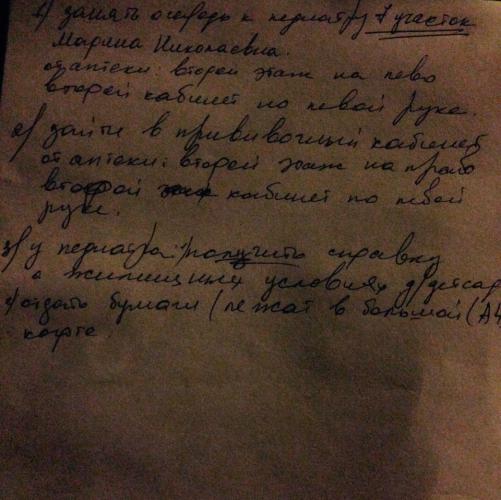 1) занять очередь к педиатру 7 участок
Марина Николаевна.
от аптеки: второй этаж на лево
второй кабинет по левой руке.
2) зайти в прививочный кабинет
от аптеки: второй этаж на право
второй кабинет по левой
руке.
3) у педиатра получить справку
о жилищных условиях д/детсад
отдать бумаги (лежат в большой (А4
карте.